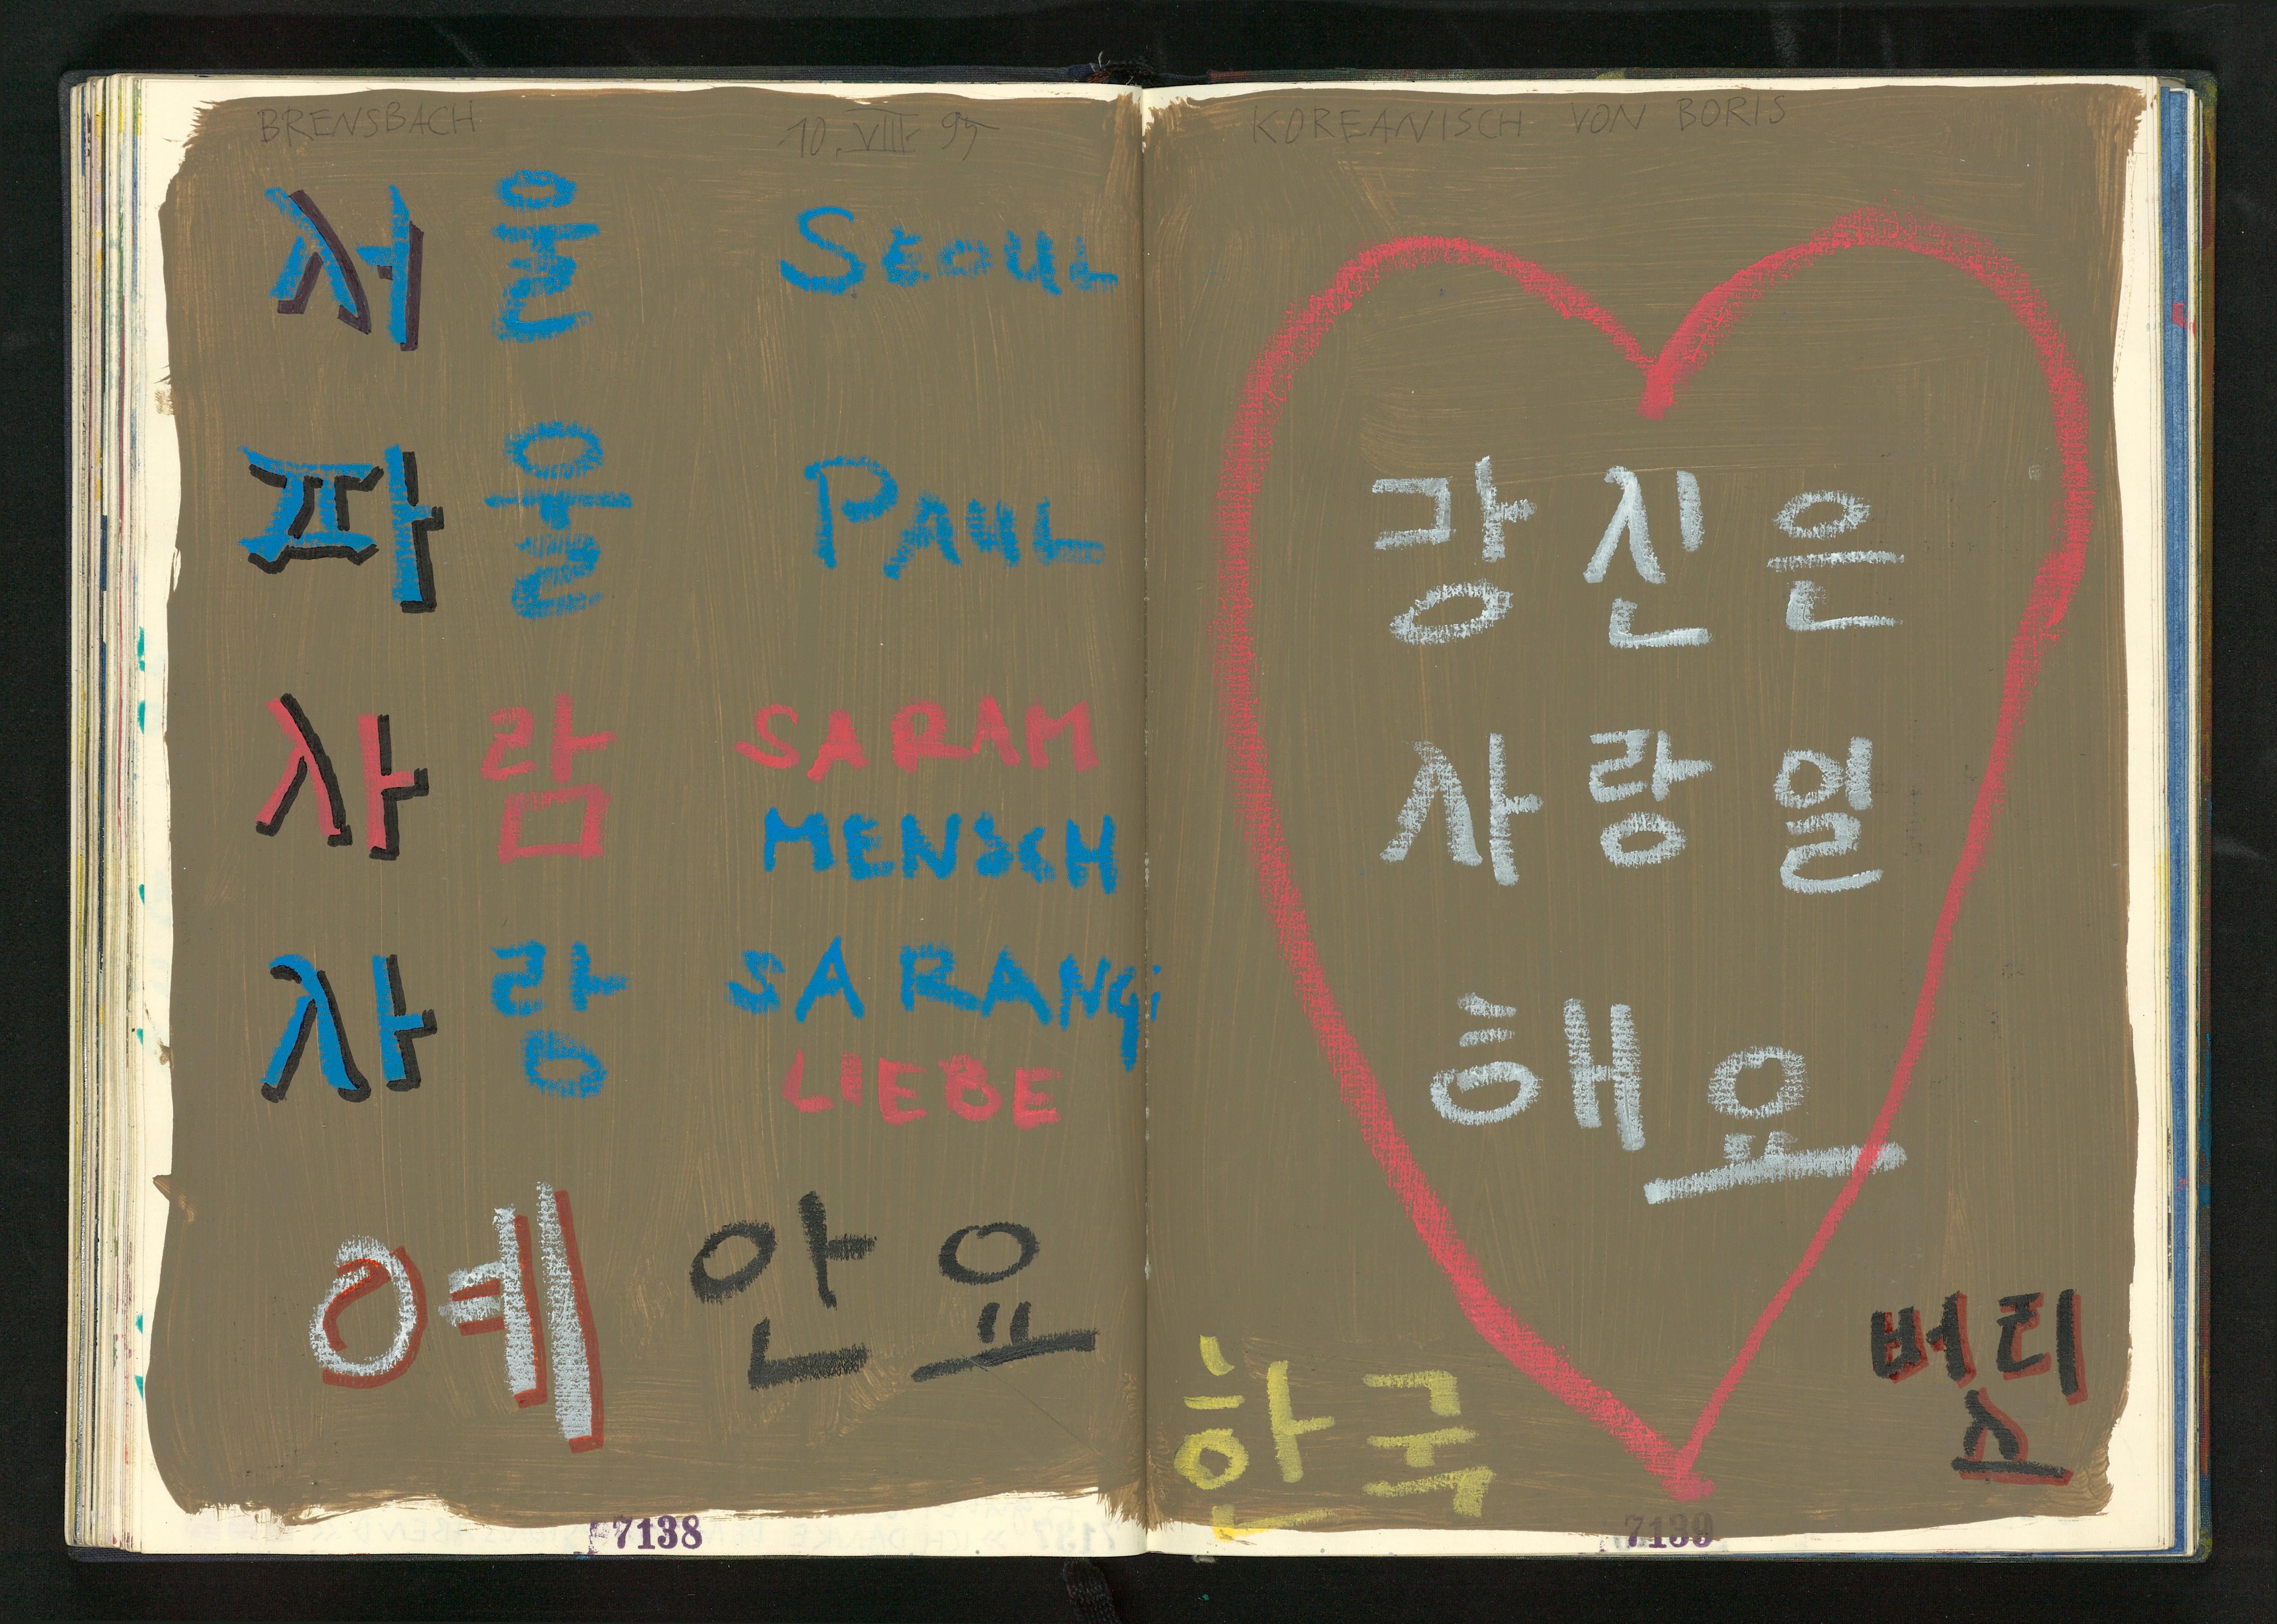 BRENSBACH 10. VIII. 95
서울 SEOUL
파울 PAUL
사람 SARAM
MENSCH
사랑 SARANG
LIEBE
예 안요
7138
KOREANISCH VON BORIS
강진은
사랑열
해요
한국
버리
스
7139